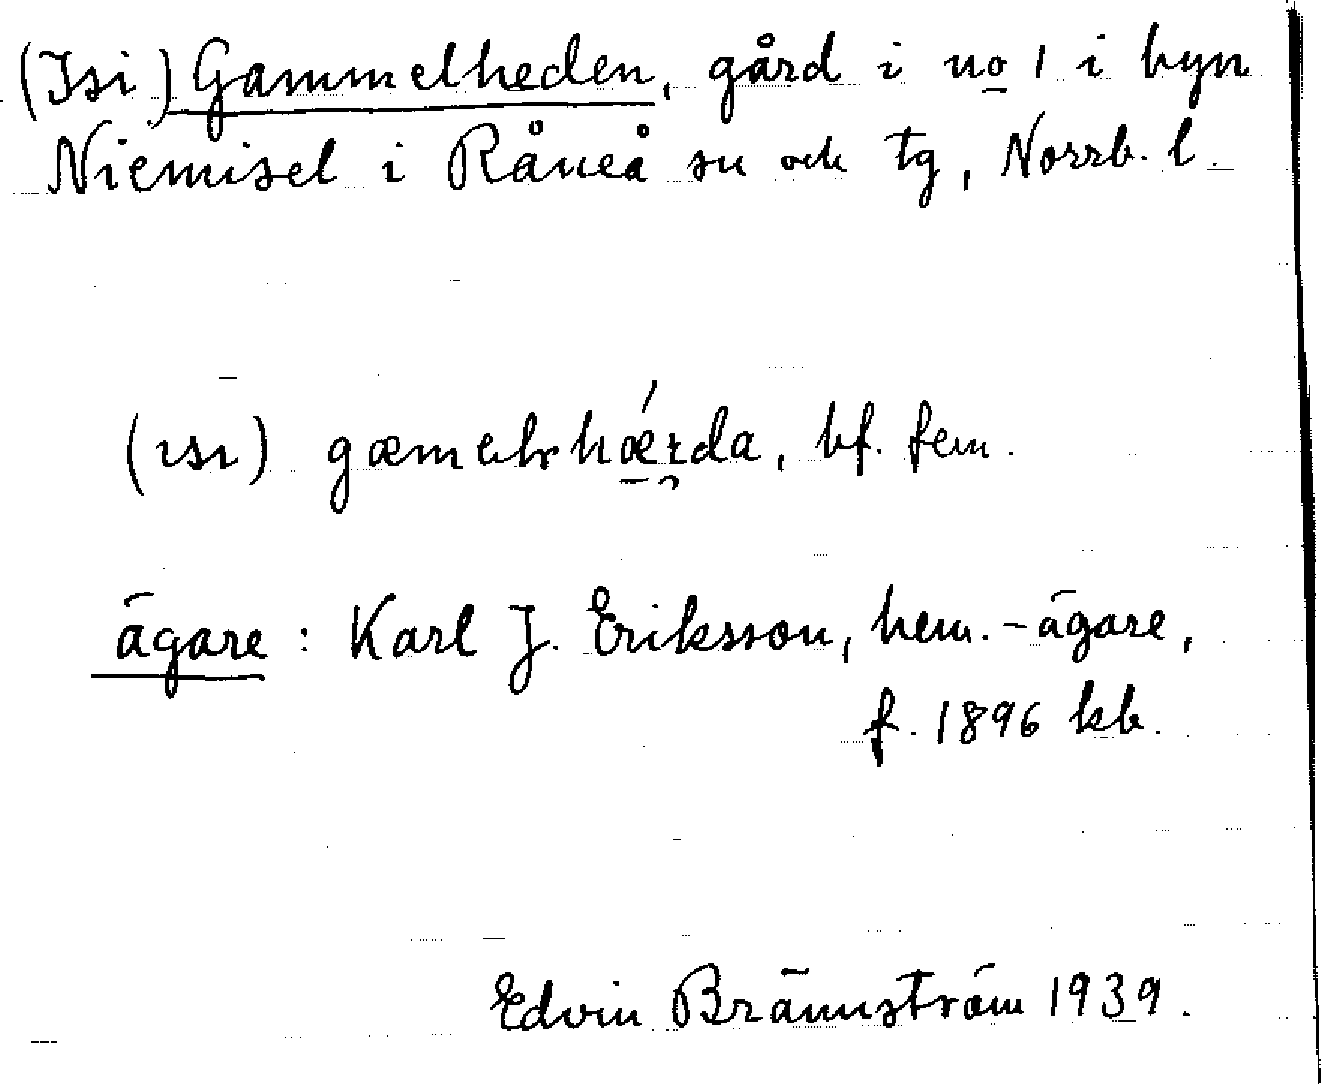 (Isi) Gammelheden, gård i no 1 i byn
Niemisel i Råneå sn och tg, Norrb. l.
(ısı) gæmelrhǽrda, bf. fem.
ägare: Karl J. Eriksson, hem.-ägare,
f. 1896 kb.
Edvin Brännström 1939.